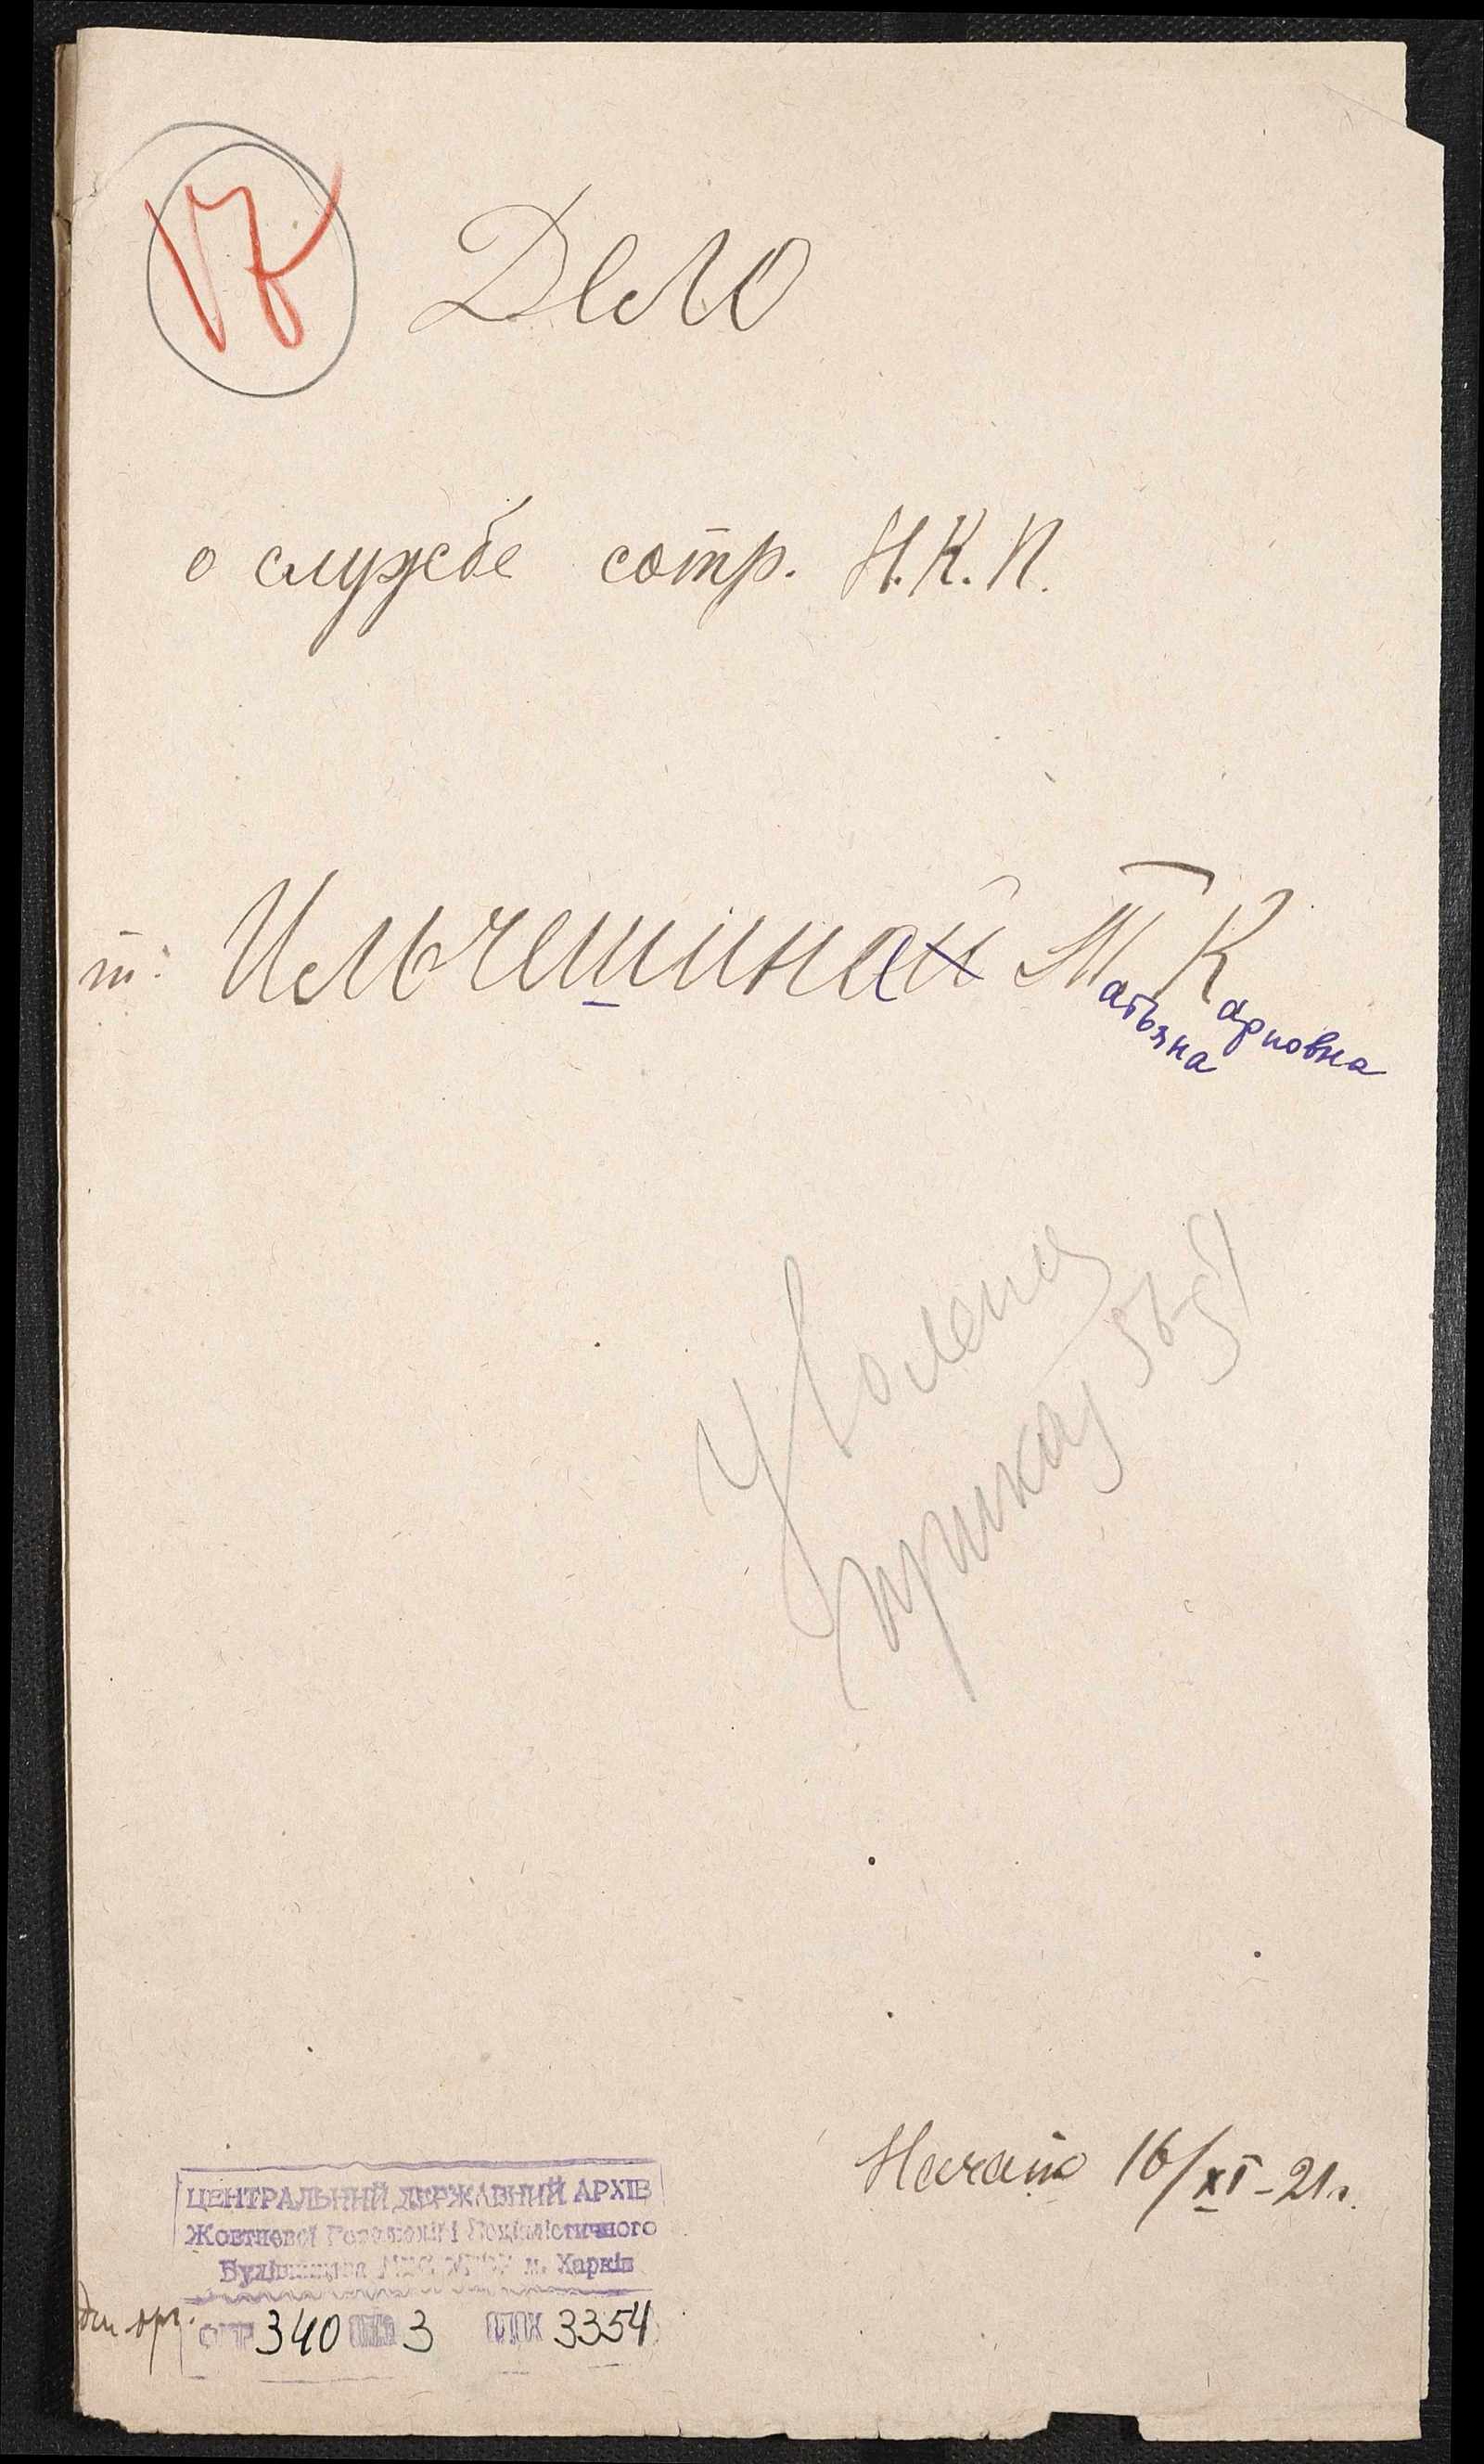 17
Дело
о службе сотр. Н.К.П.
т. Ильчешина Т К
атьяна арповна
Уволена
приказ 56 §1
Начато 16/XI-21г.
ЦЕНТРАЛЬНИЙ ДЕРЖАВНИЙ АРХІВ
Жовтневої Революції і Соціалістичного
Будівництва м. Харків
340 3 3354